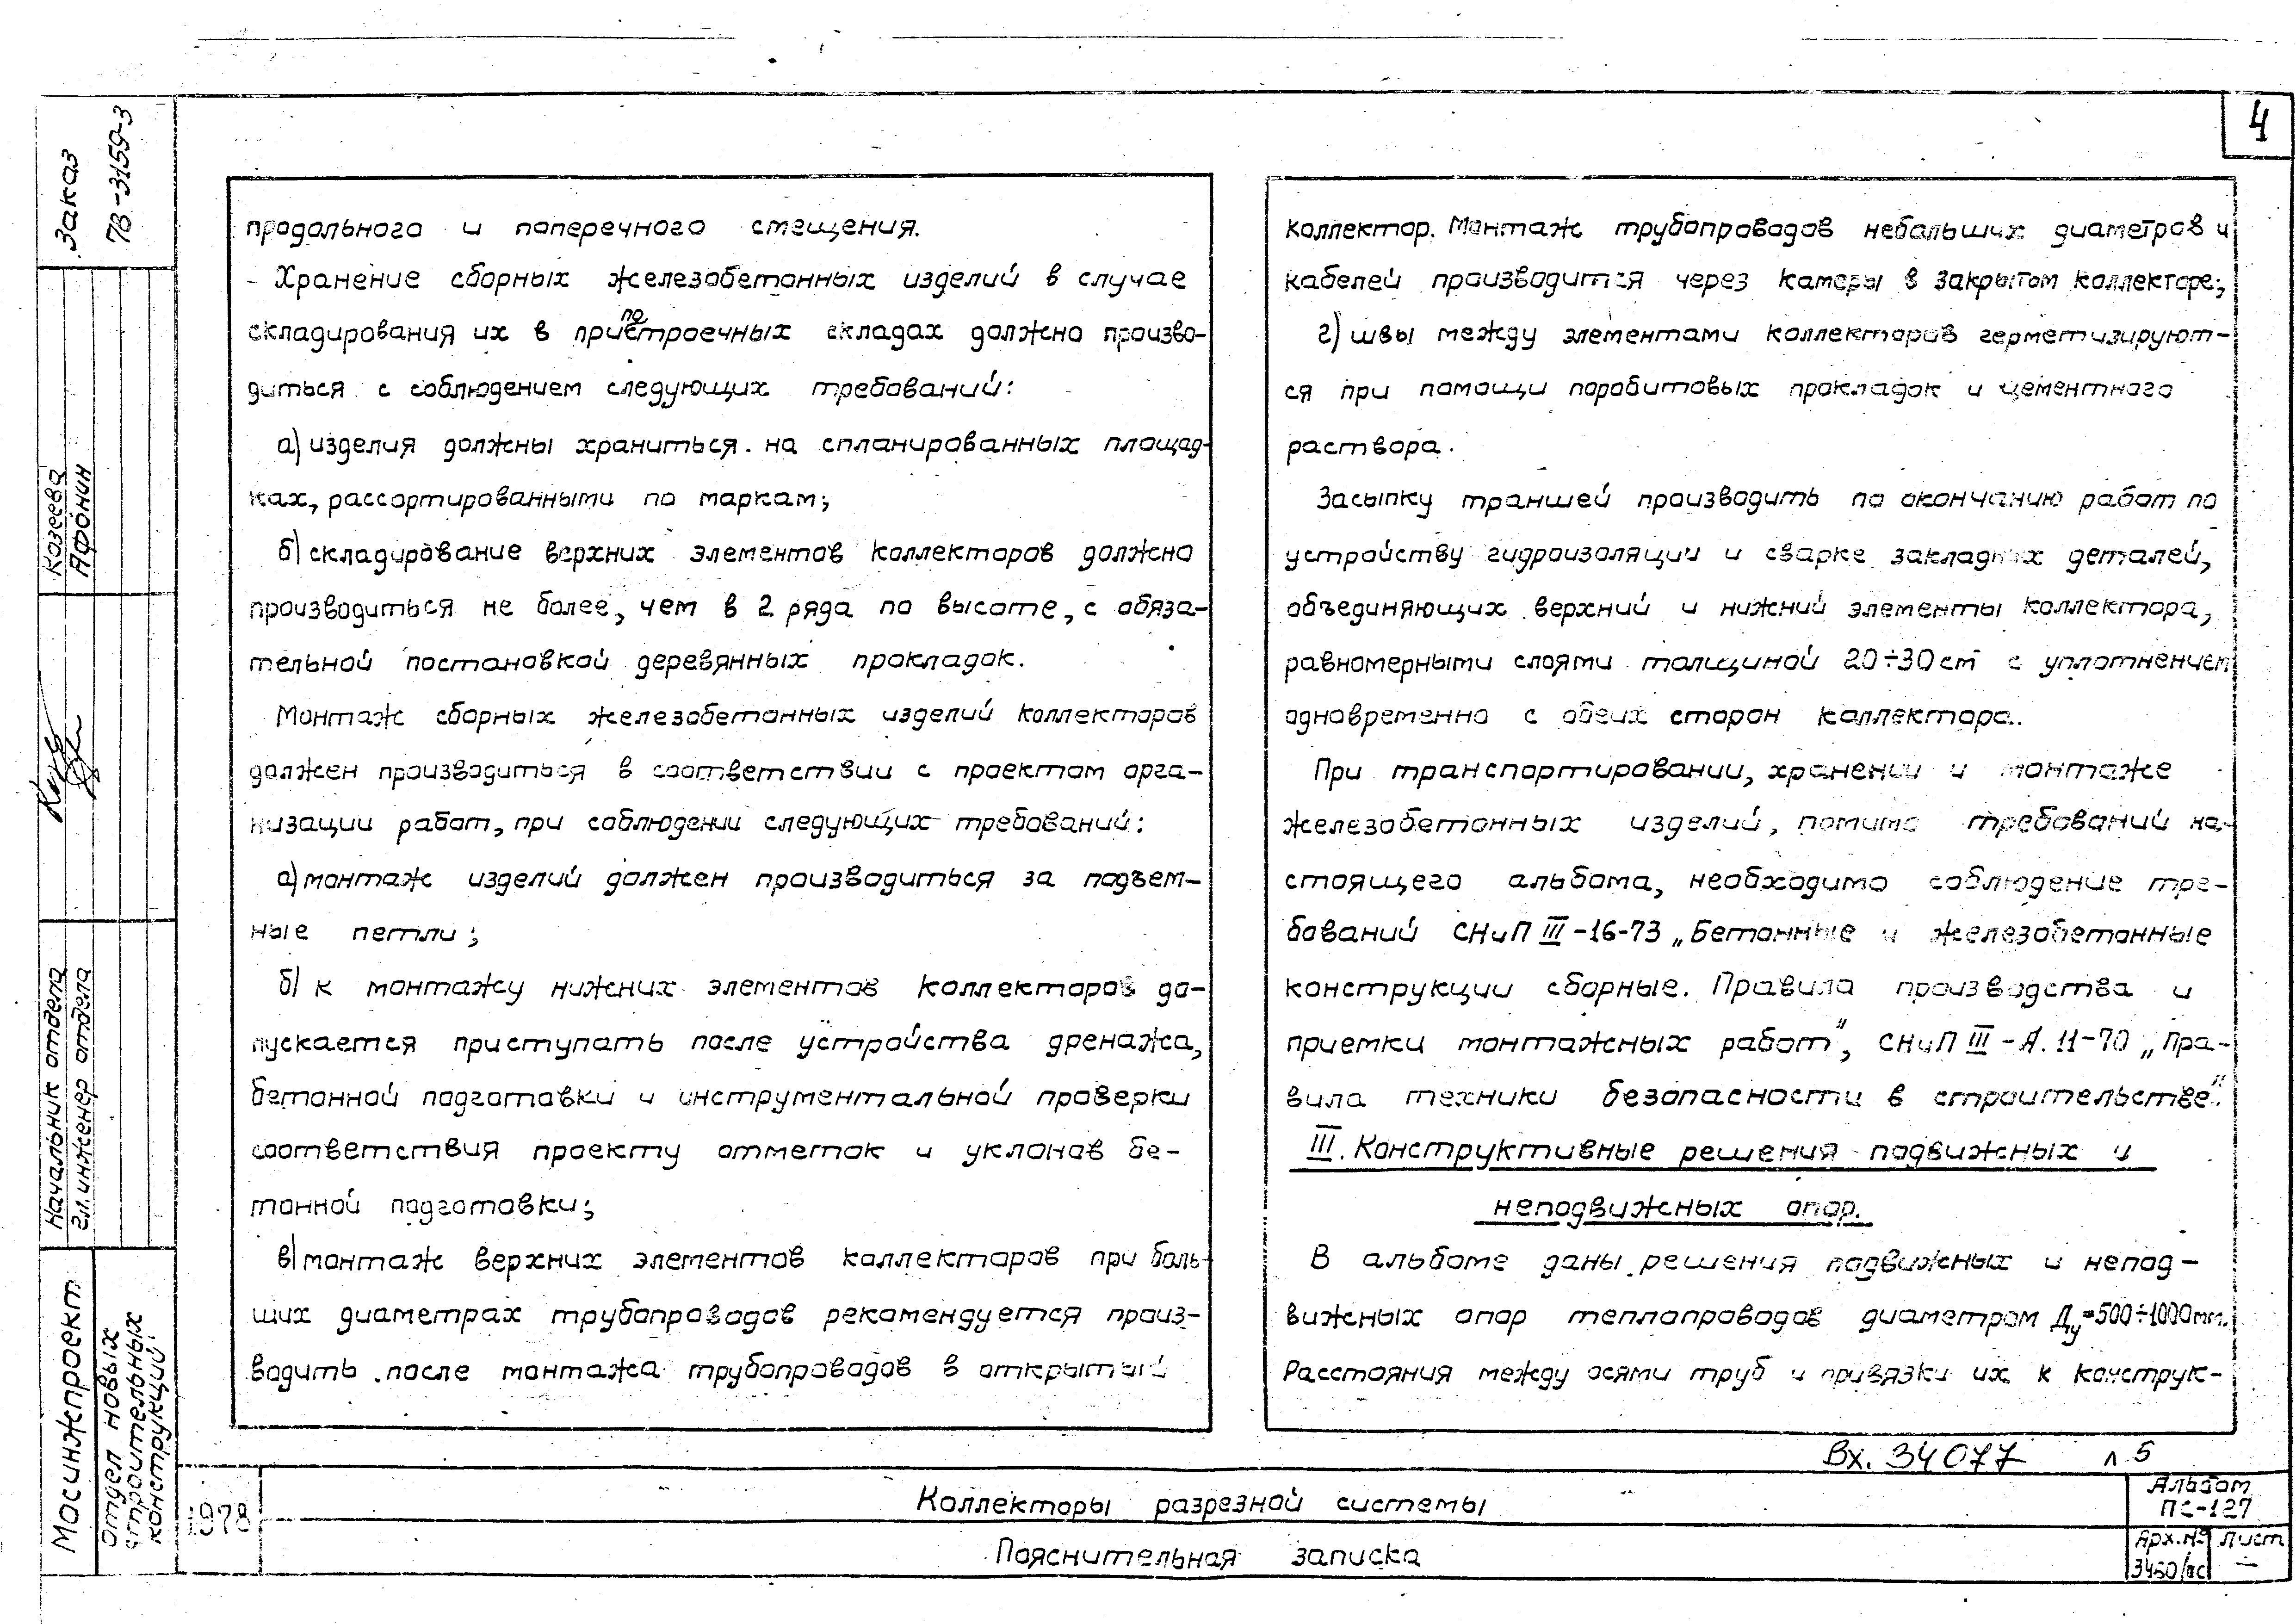 4
Заказ
7В-3159-3
Казеева
Афонин
Начальник отдела
Гл. инженер отдела
Мосинжпроект
отдел новых
строительных
конструкций
продольного и поперечного смещения.
- Хранение сборных железобетонных изделий в случае
складирования их в припостроечных складах должно произво-
диться с соблюдением следующих требований:
а) изделия должны храниться на спланированных площад-
ках, рассортированными по маркам;
б) складирование верхних элементов коллекторов должно
производиться не более, чем в 2 ряда по высоте, с обяза-
тельной постановкой деревянных прокладок.
Монтаж сборных железобетонных изделий коллекторов
должен производиться в соответствии с проектом орга-
низации работ, при соблюдении следующих требований:
а) монтаж изделий должен производиться за подъем-
ные петли;
б) к монтажу нижних элементов коллекторов до-
пускается приступать после устройства дренажа,
бетонной подготовки и инструментальной проверки
соответствия проекту отметок и уклонов бе-
тонной подготовки;
в) монтаж верхних элементов коллекторов при боль-
ших диаметрах трубопроводов рекомендуется произ-
водить после монтажа трубопроводов в открытый
коллектор. Монтаж трубопроводов небольших диаметров и
кабелей производится через камеры в закрытом коллекторе;
г) швы между элементами коллекторов герметизируют-
ся при помощи поробитовых прокладок и цементного
раствора.
Засыпку траншей производить по окончанию работ по
устройству гидроизоляции и сварке закладных деталей,
объединяющих верхний и нижний элементы коллектора,
равномерными слоями толщиной 20÷30 см с уплотнением
одновременно с обеих сторон коллектора.
При транспортировании, хранении и монтаже
железобетонных изделий, помимо требований на-
стоящего альбома, необходимо соблюдение тре-
бований СНиП III-16-73 „Бетонные и железобетонные
конструкции сборные. Правила производства и
приемки монтажных работ", СНиП III-А.11-70 „Пра-
вила техники безопасности в строительстве".
III. Конструктивные решения подвижных и
неподвижных опор.
В альбоме даны решения подвижных и непод-
вижных опор теплопроводов диаметром Ду=500÷1000мм.
Расстояния между осями труб и привязки их к конструк-
Вх. 34077 л. 5
1978
Коллекторы разрезной системы
Пояснительная записка
Альбом
ПС-127
Арх.№ Лист
3450/пс –